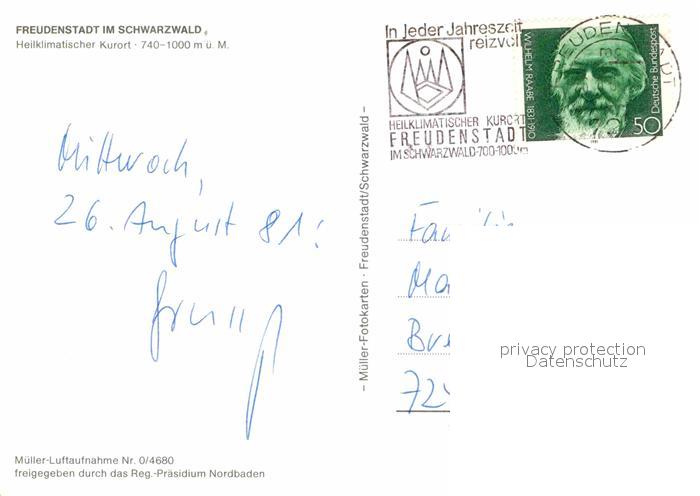 FREUDENSTADT IM SCHWARZWALD
Heilklimatischer Kurort · 740–1000 m ü. M.
In jeder Jahreszeit
reizvoll
HEILKLIMATISCHER KURORT
FREUDENSTADT
IM SCHWARZWALD·700-1000m
WILHELM RAABE 1831-1910
Deutsche Bundespost
50
FREUDEN
Mittwoch,
26. August 81!
– Müller-Fotokarten · Freudenstadt/Schwarzwald –
Fam
Ma
72
privacy protection
Datenschutz
Müller-Luftaufnahme Nr. 0/4680
freigegeben durch das Reg.-Präsidium Nordbaden